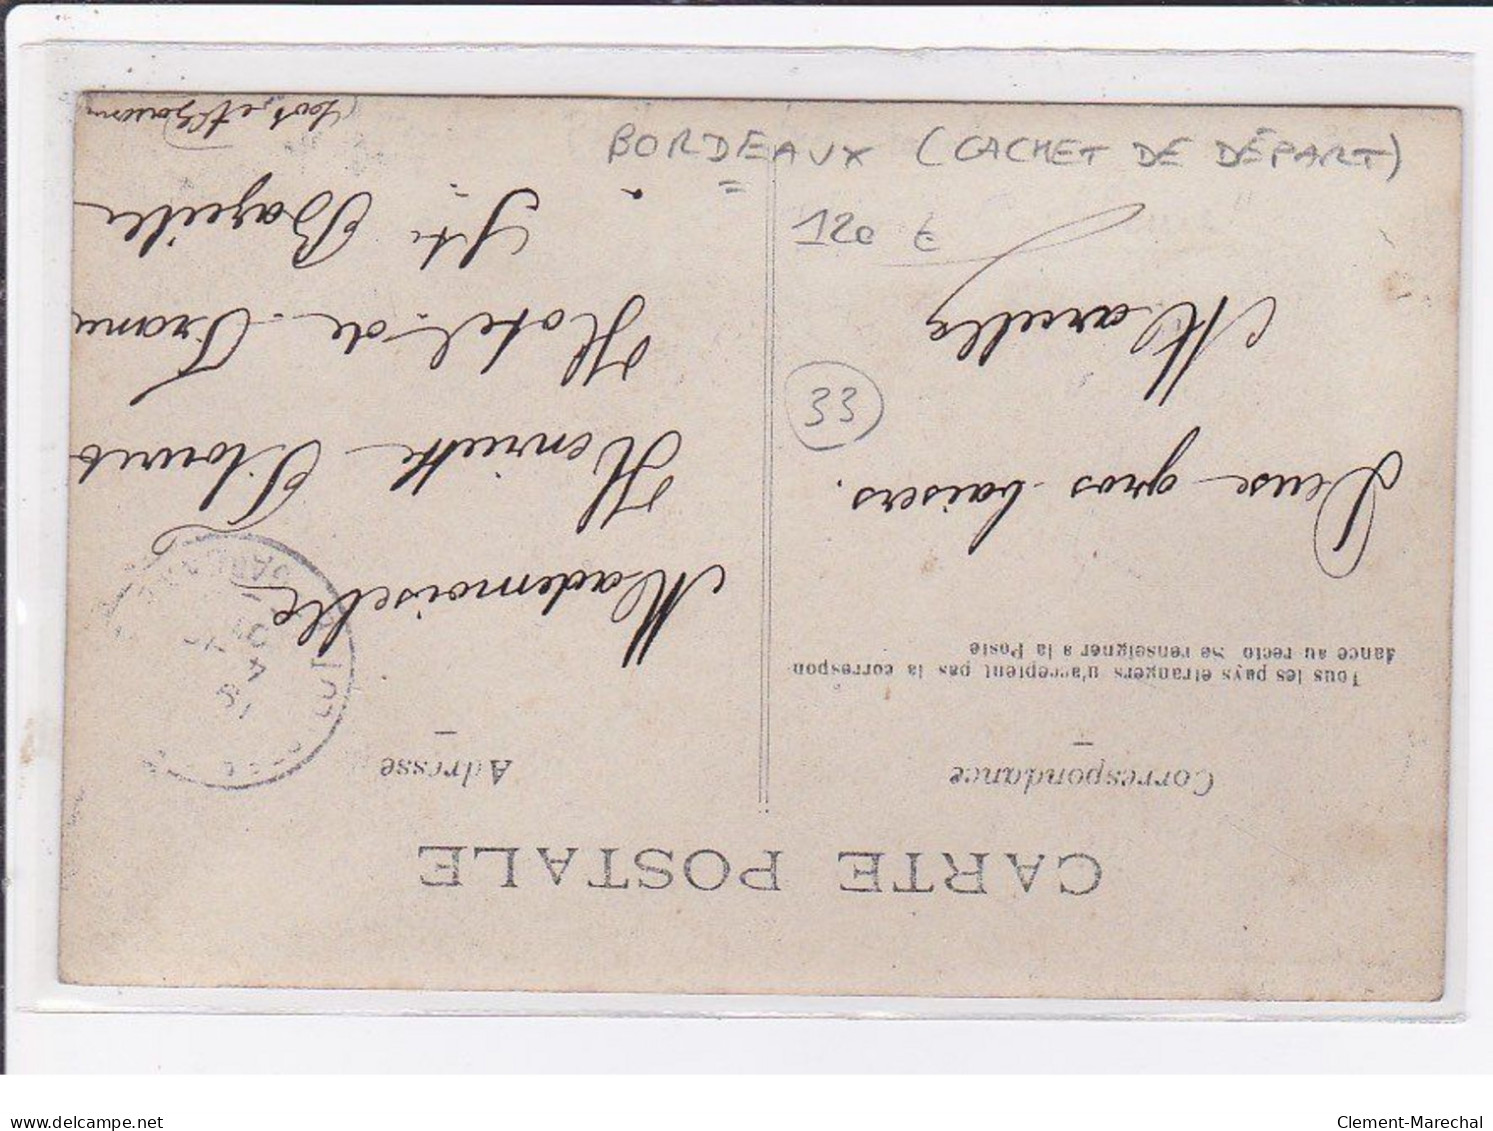 BORDEAUX (CACHET DE DÉPART)
120 €
33
CARTE POSTALE
Correspondance
Tous les pays étrangers n'acceptent pas la correspon-
dance au recto Se renseigner à la Poste
Deux gros baisers.
Marcelle
Adresse
Mademoiselle
Henriette
Hotel de France
Ste Bazeille
(Lot et Garonne)
delcampe.net
Clement-Marechal